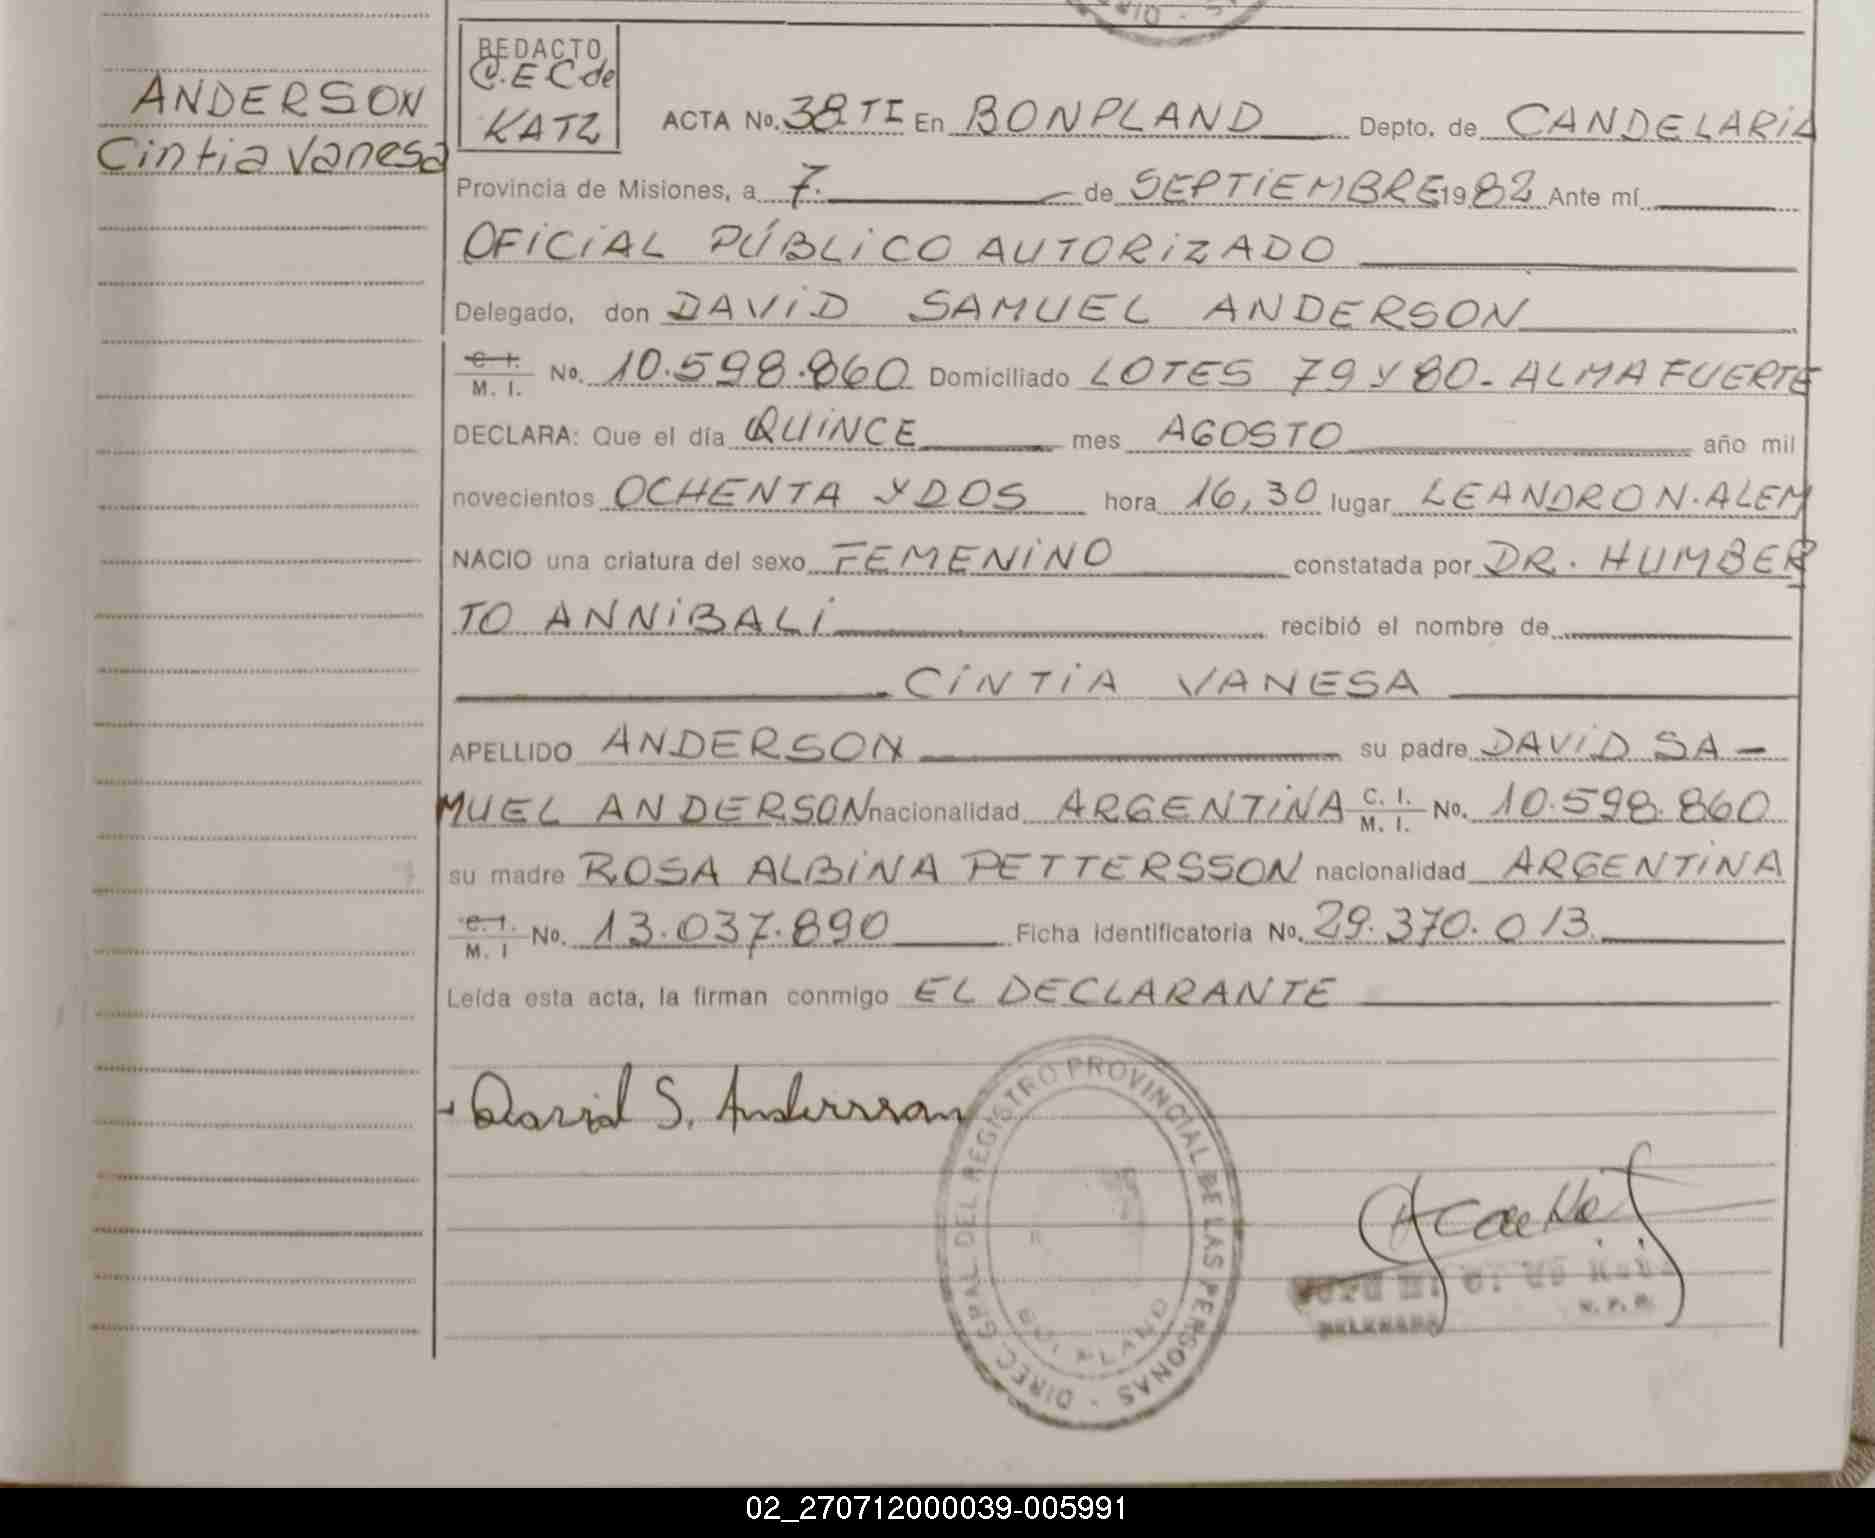 ANDERSON
Cintia Vanesa
REDACTO
C.E C de
KATZ
ACTA No. 38 TI En BONPLAND Depto. de CANDELARIA
Provincia de Misiones, a 7. de SEPTIEMBRE 1982 Ante mí
OFICIAL PÚBLICO AUTORIZADO
Delegado, don DAVID SAMUEL ANDERSON
C. I. / M. I. No. 10.598.860 Domiciliado LOTES 79 Y 80 - ALMA FUERTE
DECLARA: Que el día QUINCE mes AGOSTO año mil
novecientos OCHENTA Y DOS hora 16,30 lugar LEANDRO N. ALEM
NACIO una criatura del sexo FEMENINO constatada por DR. HUMBER
TO ANNIBALI recibió el nombre de
CINTIA VANESA
APELLIDO ANDERSON su padre DAVID SA-
MUEL ANDERSON nacionalidad ARGENTINA C. I. / M. I. No. 10.598.860
su madre ROSA ALBINA PETTERSSON nacionalidad ARGENTINA
C. I. / M. I No. 13.037.890 Ficha Identificatoria No. 29.370.013
Leída esta acta, la firman conmigo EL DECLARANTE
David S. Anderson
DIREC. GRAL. DEL REGISTRO PROVINCIAL DE LAS PERSONAS
BONPLAND
02_270712000039-005991